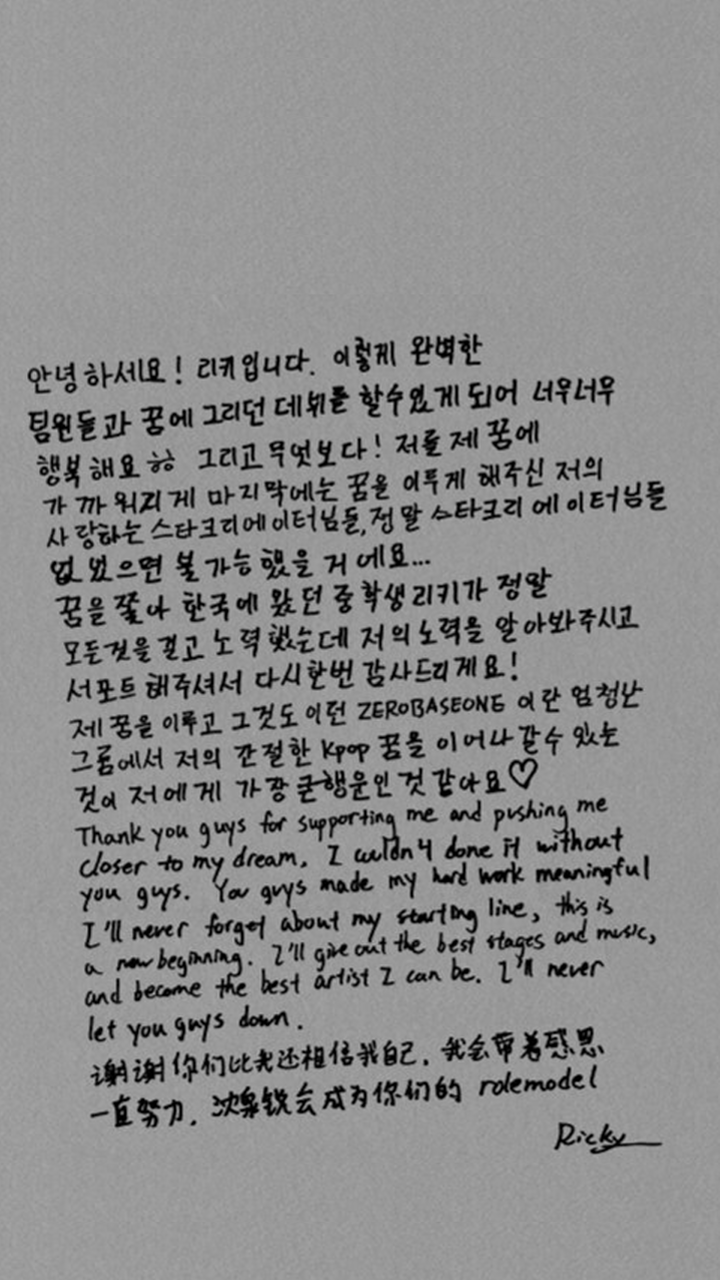 안녕하세요! 리키입니다. 이렇게 완벽한
팀원들과 꿈에 그리던 데뷔를 할수있게 되어 너우너우
행복해요 ㅎㅎ 그리고 무엇보다! 저를 제 꿈에
가까워지게 마지막에는 꿈을 이루게 해주신 저의
사랑하는 스타크리에이터님들, 정말 스타크리에이터님들
없었으면 불가능했을 거에요...
꿈을 쫓아 한국에 왔던 중학생 리키가 정말
모든것을 걸고 노력했는데 저의 노력을 알아봐주시고
서포트 해주셔서 다시한번 감사드리게요!
제 꿈을 이루고 그것도 이런 ZEROBASEONE 이란 엄청난
그룹에서 저의 간절한 Kpop 꿈을 이어나갈수 있는
것이 저에게 가장 큰행운인 것 같아요♡
Thank you guys for supporting me and pushing me
closer to my dream. I couldn't done it without
you guys. You guys made my hard work meaningful
I'll never forget about my starting line, this is
a new beginning. I'll give out the best stages and music,
and become the best artist I can be. I'll never
let you guys down.
谢谢你们比我还相信我自己. 我会带着感恩
一直努力. 沈泉锐会成为你们的 rolemodel
Ricky